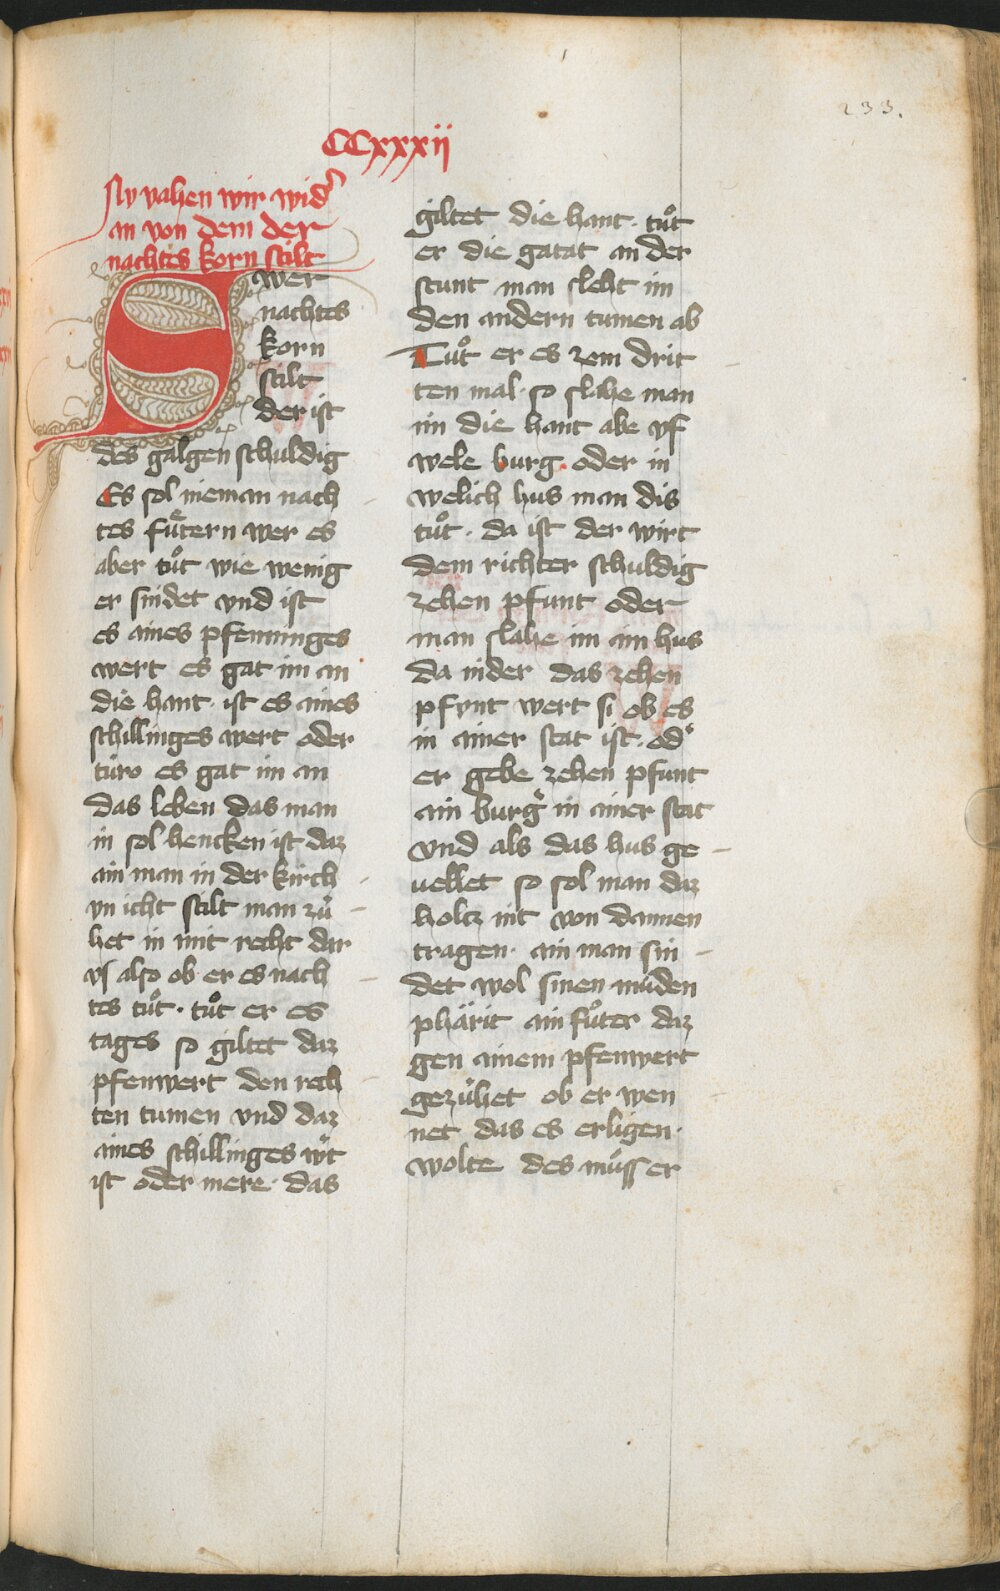 233.
CCxxxii
Nv vahen wir wid᾽
an von dem der
nachtes korn stilt
Swer
nachtes
korn
stilt
der ist
des galgen schuldig
Es sol nieman nach
tes fuͤtern wer es
aber tuͦt wie wenig
er findet vnd ist
es aines pfenninges
wert es gat im an
die hant· ist es aines
schillinges wert oder
túro es gat im an
das leben das man
in sol hencken ist daz
ain man in der kirch
yn icht stilt man zú
het in mit recht dar
vs also ob er es nach
tes tuͦt· tuͦt er es
tages so giltet daz
pfenwert den rech
ten tumen vnd daz
aines schillinges w᾽t
ist oder mere· das
giltet die hant· tuͦt
er die gatat an der
stunt man slecht im
den andern tumen ab
Tuͦt er es zem drit
ten mal· so slahe man
im die hant abe vf
wele burg· oder in
welich hus man dis
tuͦt· da ist der wirt
dem richter schuldig
zehen pfunt oder
man slahe im ain hus
da nider das zehen
pfvnt wert si ob es
in ainer stat ist· od᾽
er gebe zehen pfunt
ain burg᾽ in ainer stat
vnd als das hus ge
vellet so sol man daz
holtz nit von dannen
tragen· ain man fin
det wol sinen múden
phärit ain fuͦter daz
gen ainem pfenwert
gezúhet ob er wen
net das es erligen·
wolte des múss er